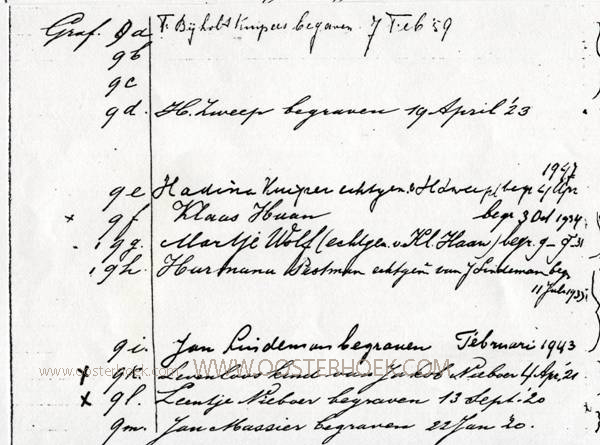 Graf. 9a F. Bijholt Kuipers begraven 7 Feb '59
9b
9c
9d. H. Zweep begraven 19 April '23
1947
9e Hadina Kuiper echtgen. v. H. Zweep, begr. 4 Apr
x 9f Klaas Haan begr. 3 Oct 1934
9g. Martje Wolf (echtgen. v. Kl. Haan) begr. 9-9-31
9h. Harmanna Pestman echtgen van J Lindeman begr
11 Juli 1935
9i. Jan Lindeman begraven Februari 1943
x 9k. Levenloos kind van Jakob Nieboer 4 Apr. 21
www.oosterhoek.com WWW.OOSTERHOEK.COM
x 9l. Leentje Nieboer begraven 13 Sept. 20
9m. Jan Massier begraven 22 Jan '20.